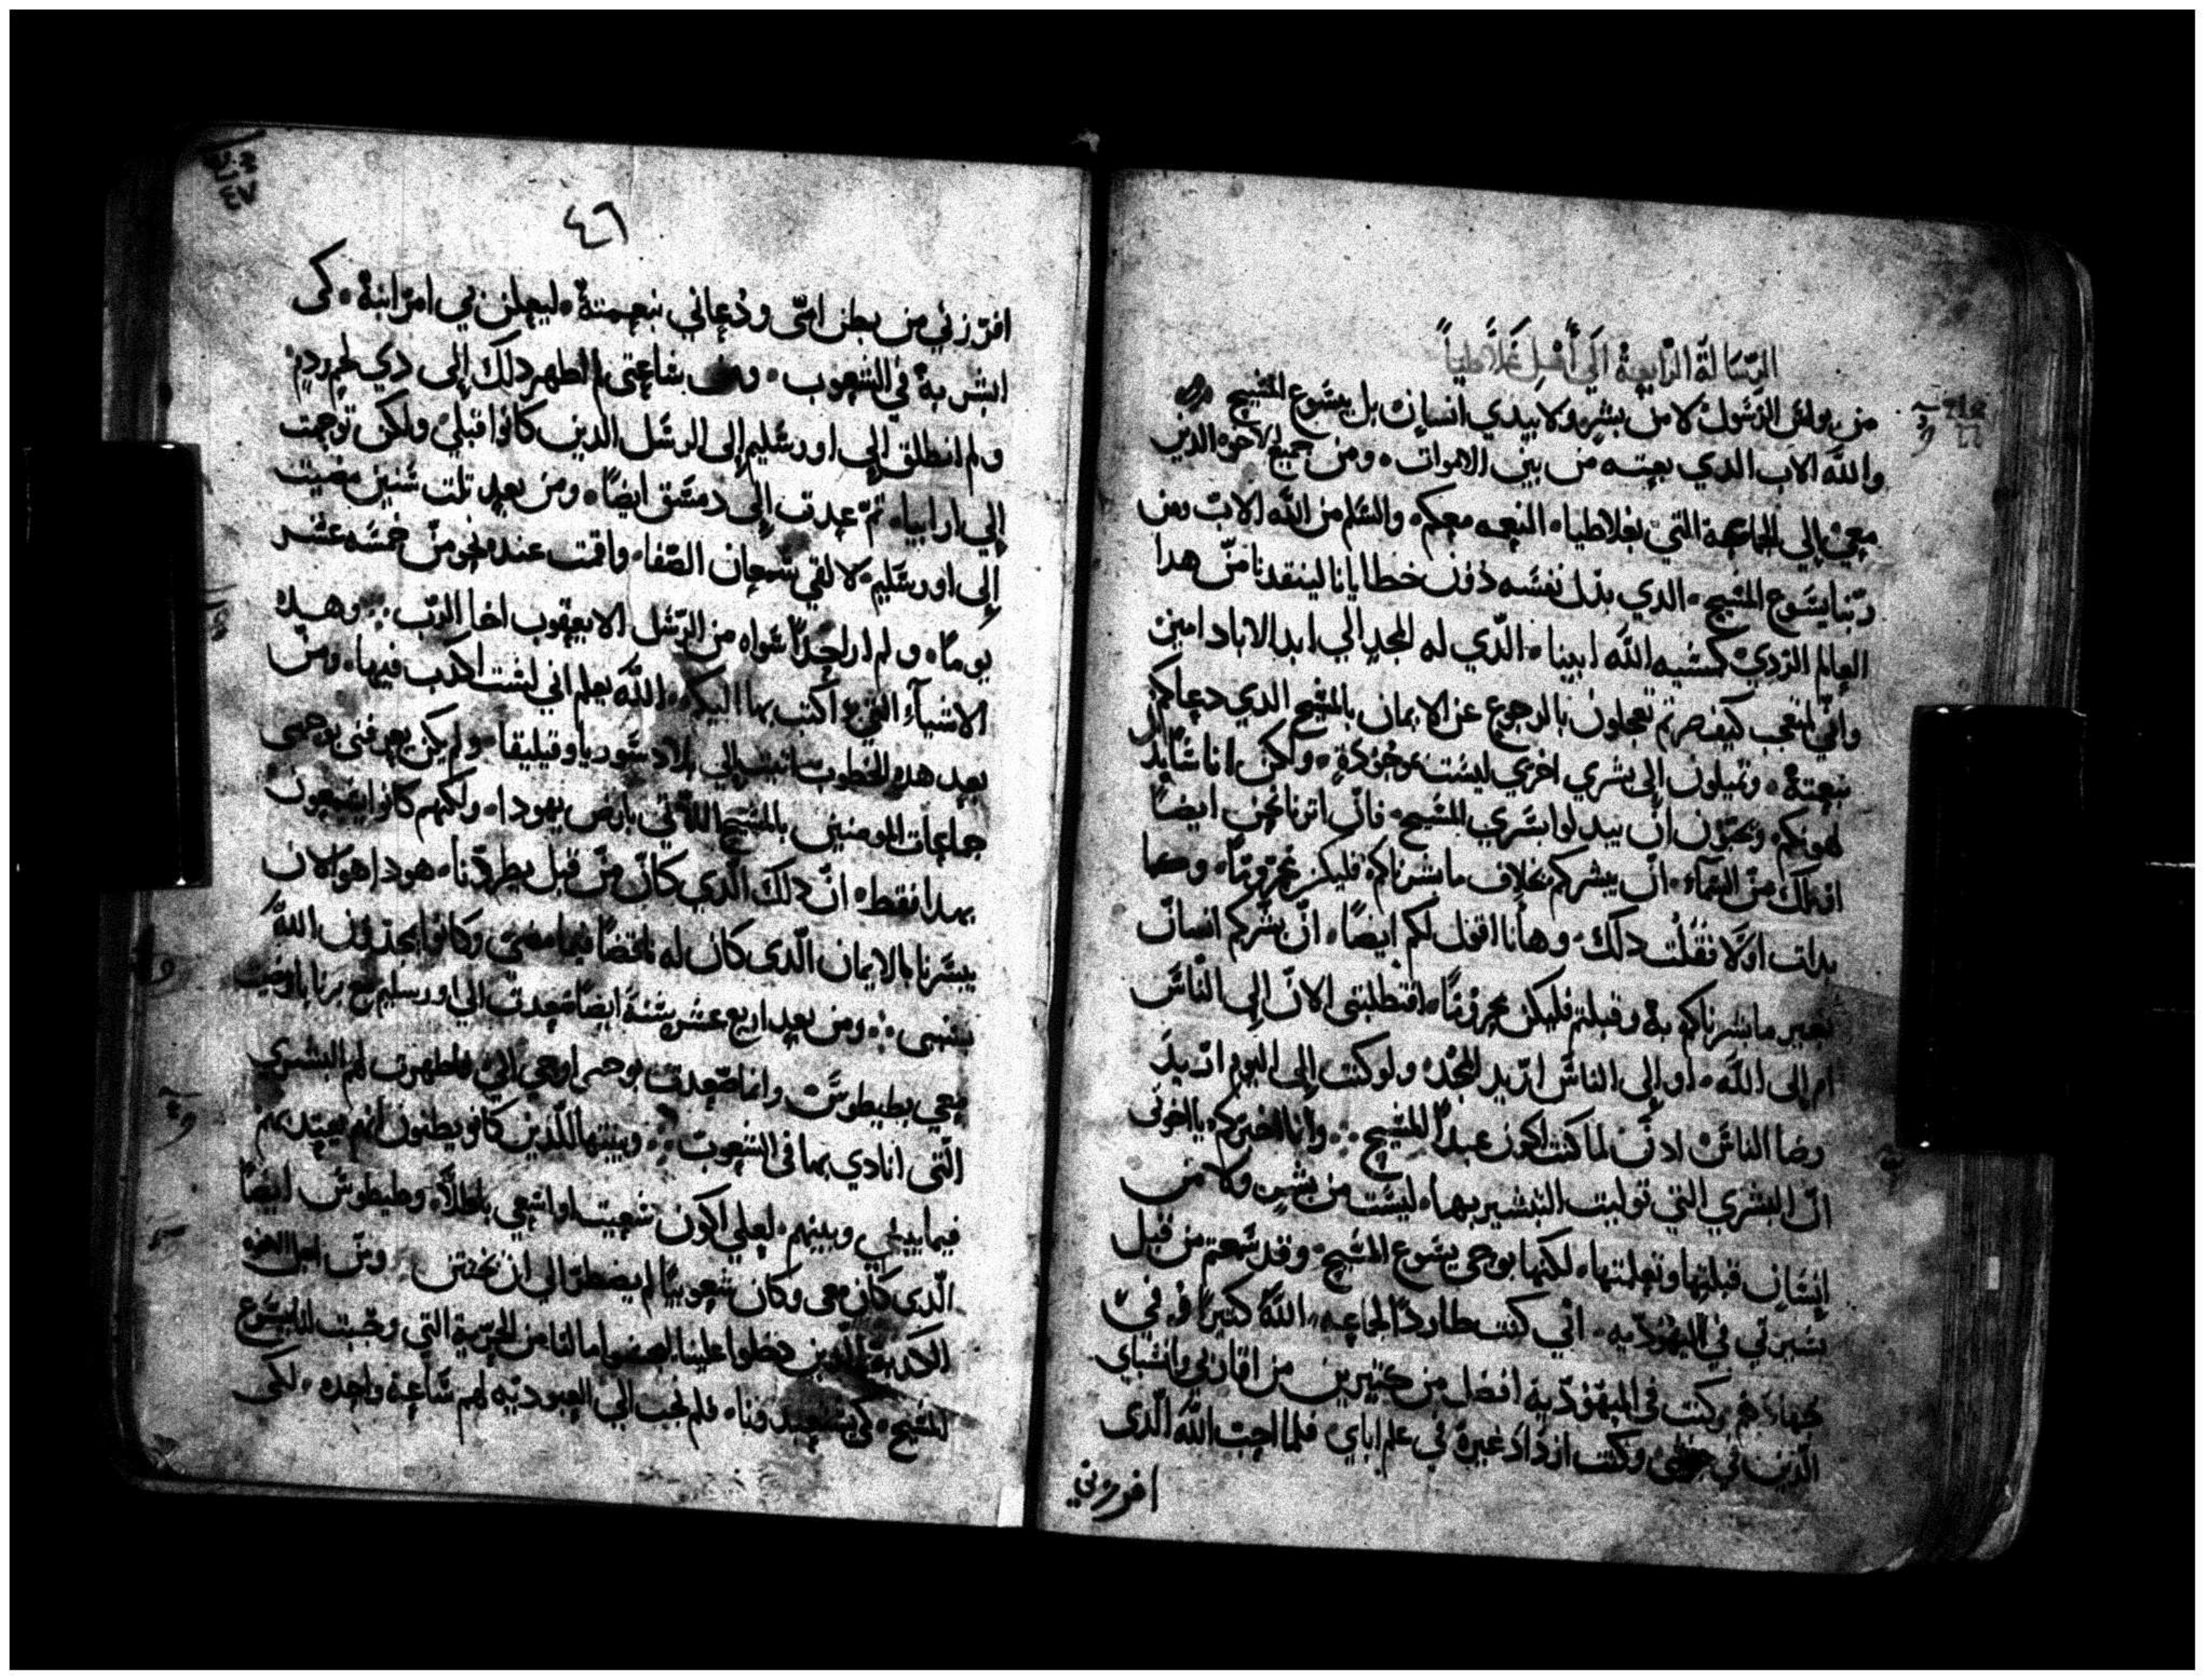 الرسالة الرابعة الي أهل غلاطيا
من بولس الرسول لا من بشر ولا بيدي انسان بل بيسوع المسيح
والله الاب الدي بعته من بين الاموات ومن جميع الاخوه الدين
معي إلي الجماعة التي بغلاطيا النعمه معكم والسلم من الله الاب ومن
ربنا يسوع المسيح الدي بدل نفسه دون خطايانا لينقدنا من هدا
العالم الردي كمشيه الله ابينا الدي له المجد الي ابد الاباد امين
واني لمتعجب كيف صرتم تعجلون بالرجوع عن الايمان بالمسيح الدي دعاكم
بنعمتة وتميلون الى بشري اخري ليست موجودة ولكن اناسا
لهونكم وتحبون ان يبدلوا بشري المسيح فان اترنا نحن ايضا
او ملك من السماء ان يبشركم بخلاف ما بشرناكم فليكن محروما وكما
بدات اولا فقلت دلك وهأنا اقول لكم ايضا ان بشركم انسان
بغير ما بشرناكم به وقبلتم فليكن محروما افتطلبتي الان إلى الناس
ام إلى الله او إلى الناس اريد المجد ولو كنت إلى اليوم اريد
رضا الناس ادن لما كنت اكون عبدا للمسيح وأنا اخبركم يا اخوتي
ان البشري التي توليت التبشير بها ليست من بشر ولا من
إنسان قبلتها وتعلمتها لكنها بوحي يسوع المسيح وقد سمعتم من قبل
بسيرتي في اليهوديه اني كنت طاردا لجماعه الله كتيرا وفي
بجهادهم وكنت في اليهودية افضل من كتيرين من اقاربي واتسباي
الدين في جنسي وكنت ازداد غيرة في علم اباي فلما احب الله الدي
افرزني
٤٦
افرزني من بطن امي ودعاني بنعمتة ليعلن بي امر ابنة كي
ابشر بة في الشعوب ومن ساعتي لم اظهر دلك إلى دي لحم ودم
ولم انطلق إلى اورشليم إلى الرسل الدين كانوا قبلي ولكن توجهت
إلي ارابيا تم عدت إلى دمشق ايضا ومن بعد تلت سنين مضيت
إلى اورشليم لالقي شمعان الصفا واقمت عنده نحو من خمسه عشر
يوما ولم ار احدا سواه من الرسل الا يعقوب اخا الرب وهده
الاشيآء التي اكتب بها اليكم الله يعلم اني لست اكدب فيها ومن
بعد هده الخطوب اتيت إلي بلاد سوريا وقيليقا ولم يكن يعرفني بوجهي
جماعات المومنين بالمسيح اللاتي بارض يهودا ولكنهم كانوا يسمعون
بهدا فقط ان دلك الدي كان من قبل يطردنا هودا هو الان
يبشرنا بالايمان الدي كان له ناقضا فيما مضى وكانوا يمجدون الله
بسببى ومن بعد اربع عشر سنة ايضا صعدت الي اورسليم مع برنابا واتيت
معي بطيطوس وانما صعدت بوحي اوحي الي فاظهرت لهم البشري
التي انادي بها في الشعوب وبينتها للدين كانو يظنون انهم يعتد بهم
فيما بيني وبينهم لعلي اكون سعيت او اسعي باطلا وطيطوس ايضا
الدي كان معي وكان شعوبيا لم يضطر الي ان يختتن ومن اجل الاخوه
الكدبة الدين دخلوا علينا ليجسوا ما لنا من الحرية التي وجبت لنا بيسوع
المسيح كي يستعبدونا فلم نجب الي العبوديه لهم ساعة واحده لكي